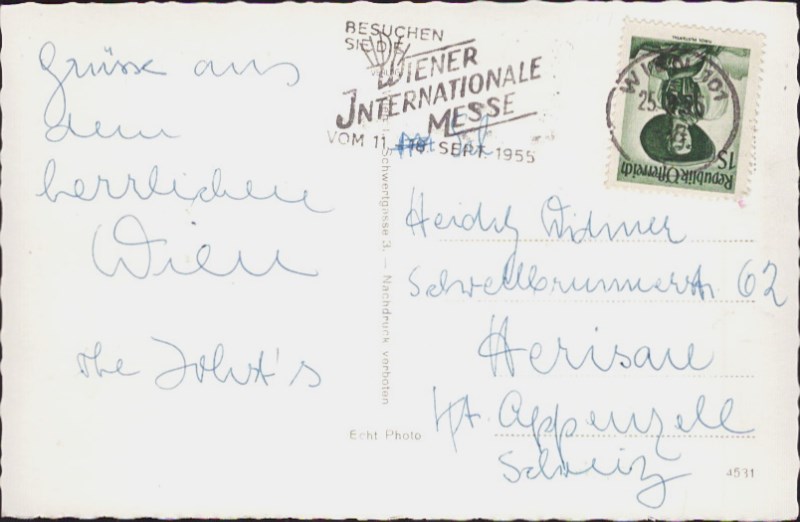 Grüsse aus
dem
herrlichen
Wien
BESUCHEN
SIE DIE
WIENER
INTERNATIONALE
MESSE
VOM 11.-18. SEPT. 1955
WIEN 101
25.
Republik Österreich
1S
Schwertgasse 3. — Nachdruck verboten
Heidy Widmer
Schwellbrunnerstr. 62
Herisau
Kt. Appenzell
Schweiz
Echt Photo
4531